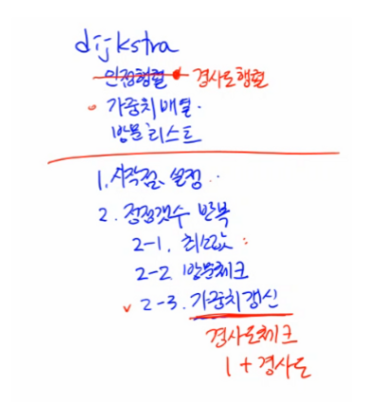 dijkstra
인접행렬 경사도행렬
가중치 배열.
방문 리스트
1. 시작점 설정..
2. 정점갯수 반복
2-1. 최소값 :
2-2 방문체크
v 2-3. 가중치 갱신
경사도체크
1 + 경사도